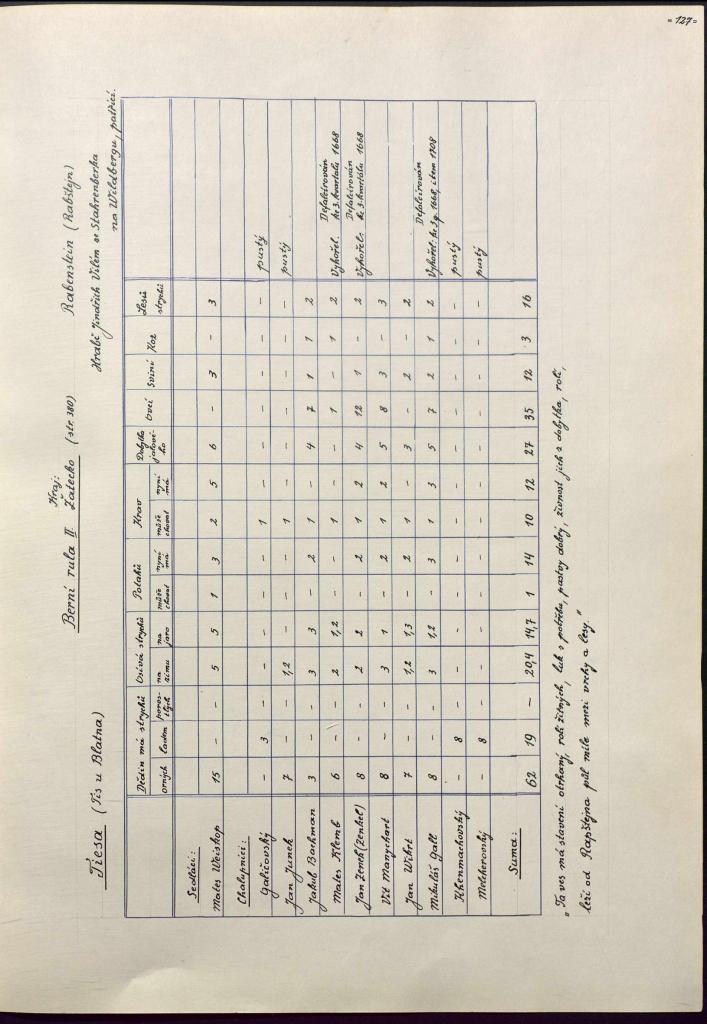 = 127 =
Tiesa (Tis u Blatna)
Berní rula II. Kraj: Žatecko (str. 380)
Rabenstein (Rabštejn)
Hrabě Jindřich Vilém ze Stahrenberka
na Wildbergu, patřící.
Dědin má strychů | Osívá strychů | Potahů | Krav | Dobytka jalového | Ovcí | Sviní | Koz | Lesů strychů
orných | ladem | porostlých | na zimu | na jaro | může chovat | nyní má | může chovat | nyní má
Sedláci:
Mates Weiskop 15 – – 5 5 1 3 2 5 6 – 3 – 3
Chalupníci:
Galičovský – 3 – – – – – 1 – – – – – – pustý
Jan Junek 7 – – 1,2 – – – 1 – – – – – – pustý
Jakub Bachman 3 – – 3 3 – 2 1 – 4 7 1 1 2
Mates Klemb 6 – – 2 1,2 – – 1 – – 1 – 1 2 Vyhořel. Defalcirován ke 3. kvartalu 1668
Jan Zentl (Zenkel) 8 – – 2 2 – 2 1 2 4 12 1 – 2 Vyhořel. Defalcirován ke 3. kvartálu 1668
Vít Manychart 8 – – 3 1 – 2 1 2 5 8 3 – 3
Jan Wihrt 7 – – 1,2 1,3 – 2 1 – 3 – 2 – 2
Mikuláš Gall 8 – – 3 1,2 – 3 1 3 5 7 2 1 2 Vyhořel. Defalcirován ke 3 q. 1668, item 1708
Khenmachovský – 8 – – – – – – – – – – – – pustý
Melcherovský – 8 – – – – – – – – – – – – pustý
Suma: 62 19 – 20,4 14,7 1 14 10 12 27 35 12 3 16
„Ta ves má stavení otrhaný, rolí žitných, luk s potřebu, pastvy dobrý, živnost jich z dobytka, rolí,
leží od Rapštejna půl míle mezi vrchy a lesy."